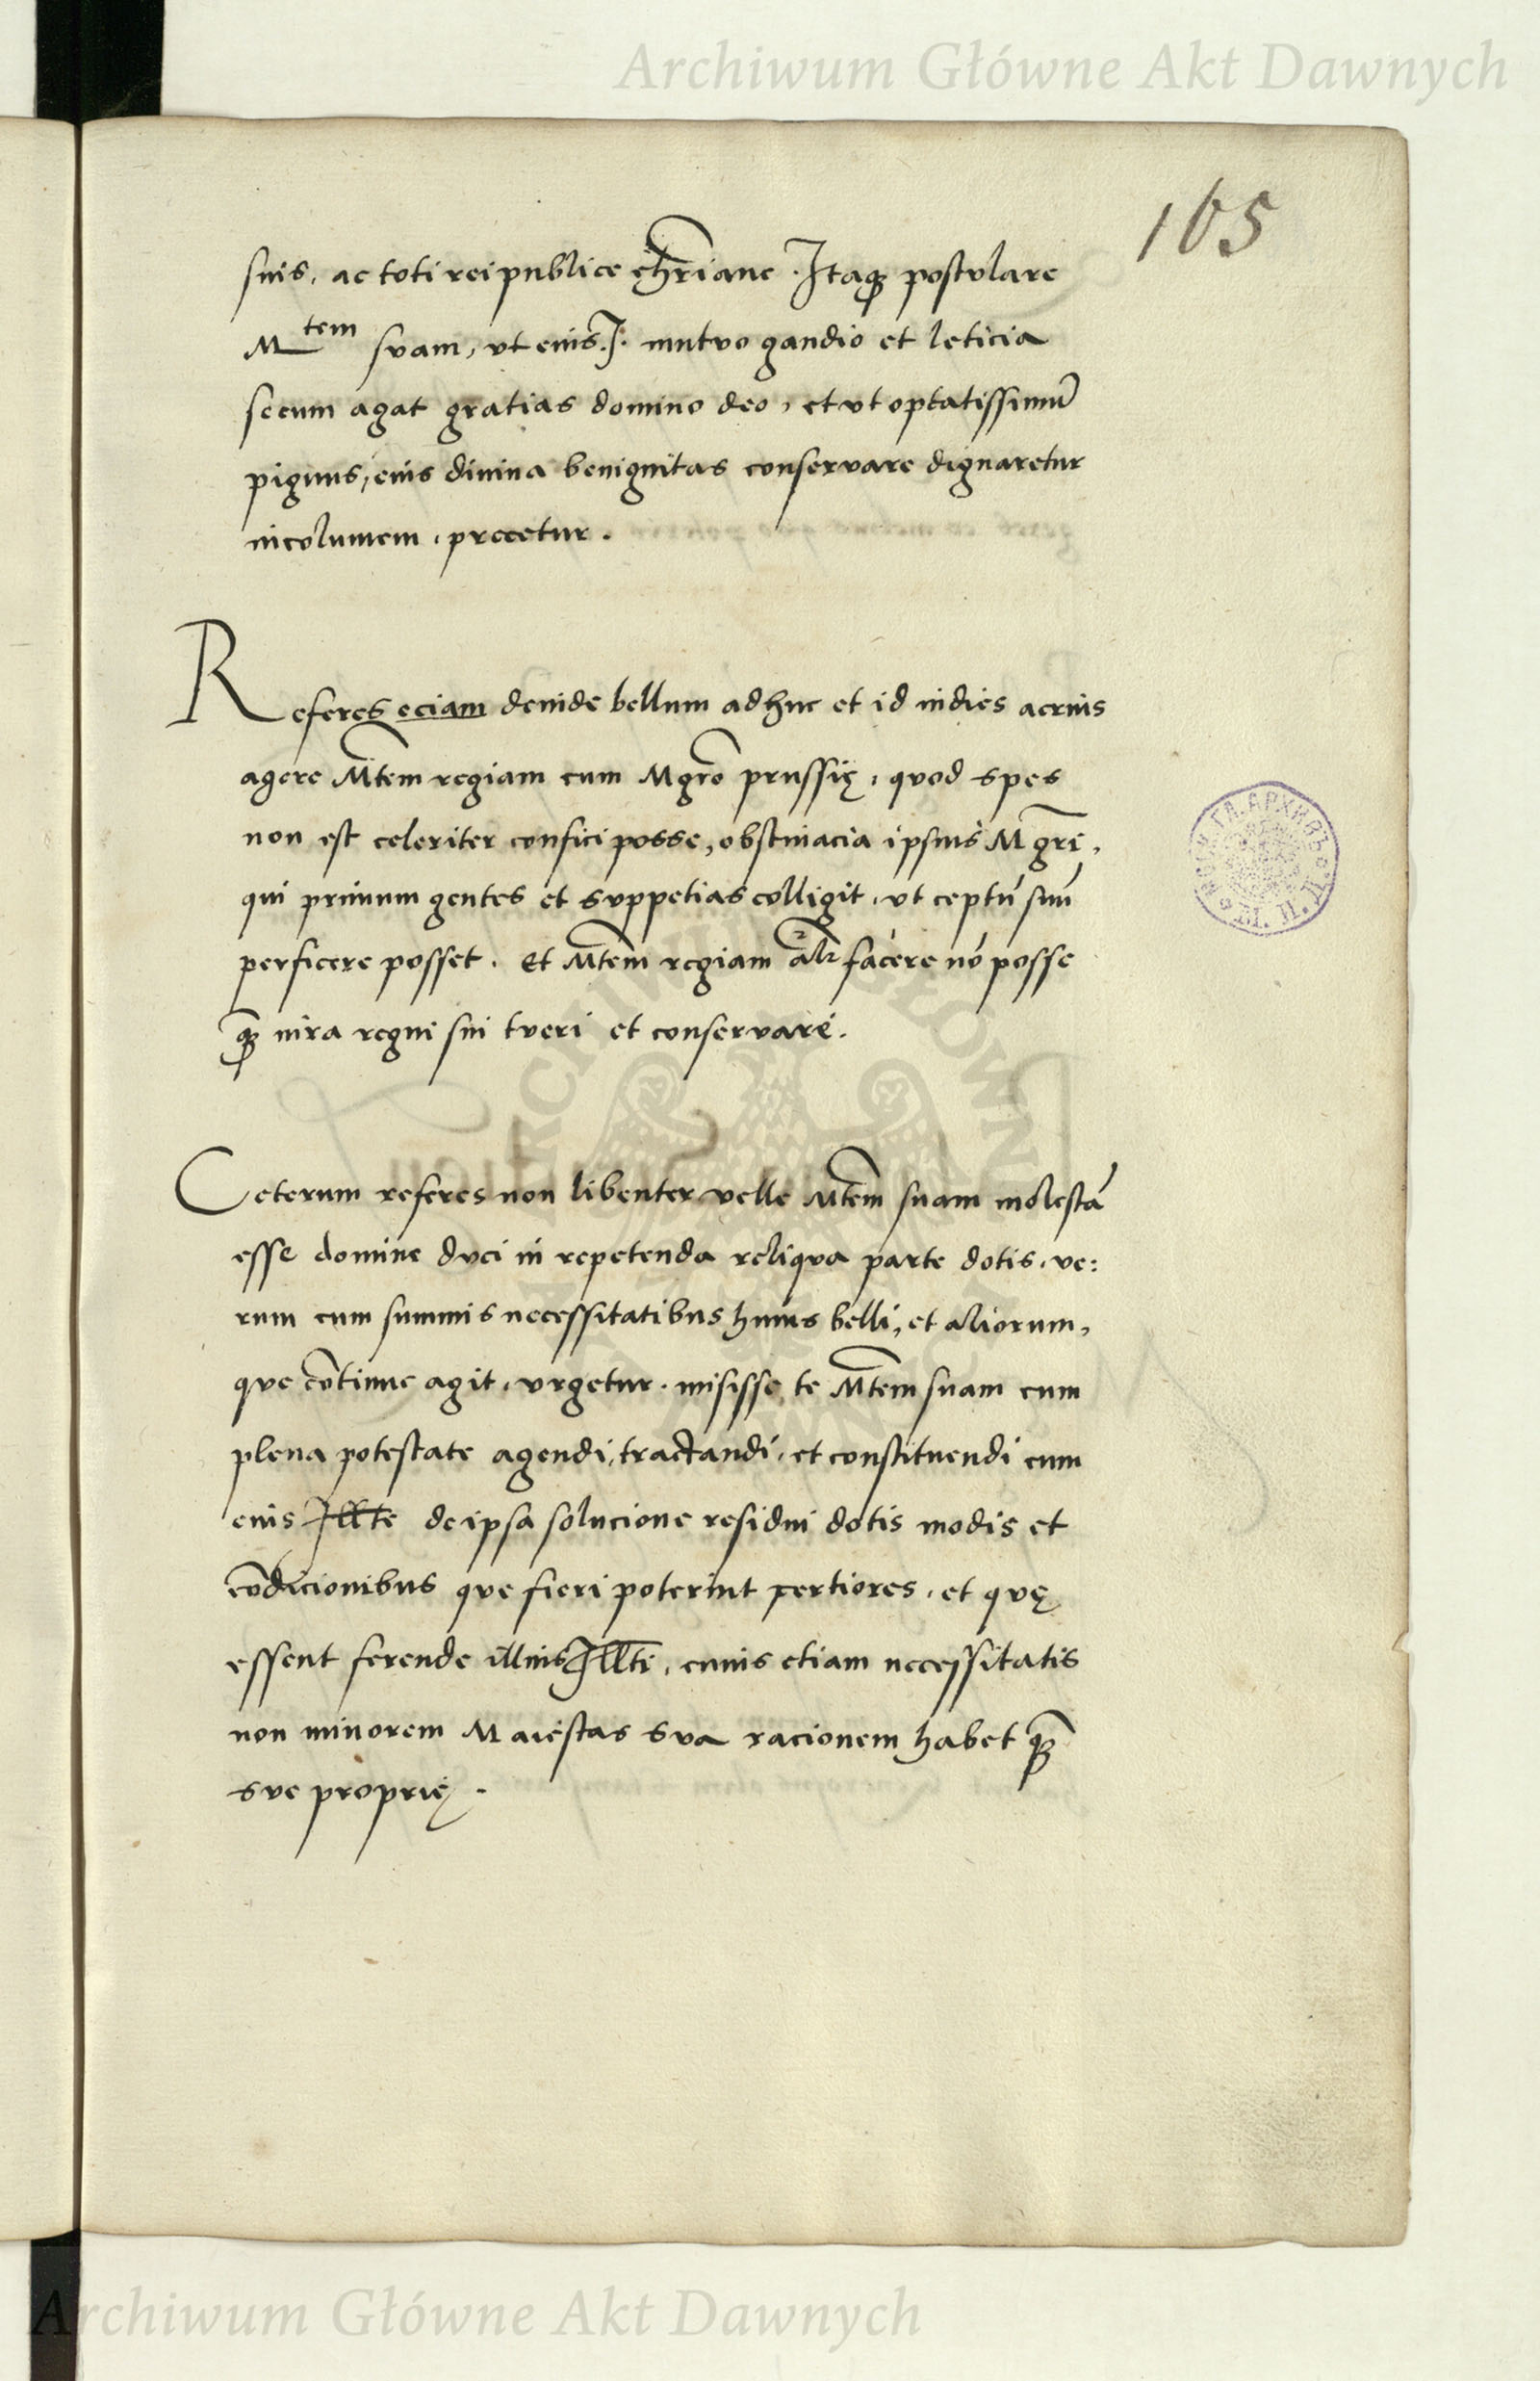 Archiwum Główne Akt Dawnych
165
suis, ac toti reipublice chr̄iane . Itaqꝫ postulare
M^tem suam, vt eius .I. mutuo gaudio et leticia
secum agat gratias domino deo, et vt optatissimū
pignus, eius diuina benignitas conservare dignaretur
incolumem, precetur.
Referes eciam deinde bellum adhuc et id indies acrius
agere M̄tem regiam cum Mgr̄o prussię, quod spes
non est celeriter confici posse, obstinacia ipsius Mgr̄i,
qui primum gentes et suppetias colligit, vt ceptū suū
perficere posset. Et M̄tem regiam al̄r facere nō posse
qꝫ̄ iura regni sui tueri et conservare.
Ceterum referes non libenter velle M̄tem suam molestā
esse domine duci in repetenda reliqua parte dotis, ve:
rum cum summis necessitatibus huius belli, et aliorum,
que cōtinue agit, vrgetur. misisse te M̄tem suam cum
plena potestate agendi, tractandi, et constituendi cum
eius Ill̄te de ipsa solucione residui dotis modis et
cōdicionibus que fieri poterint certiores, et quę
essent ferende illius Ill̄ti, cuius etiam necessitatis
non minorem Maiestas sua racionem habet qꝫ̄
sue proprię.
Archiwum Główne Akt Dawnych